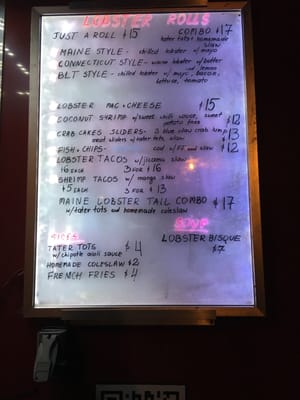 LOBSTER ROLLS
JUST A ROLL $15 COMBO $17
tater tots & homemade
slaw
MAINE STYLE - chilled lobster w/mayo
CONNECTICUT STYLE - warm lobster w/ butter
and lemon
BLT STYLE - chilled lobster w/ mayo, bacon,
lettuce, tomato
LOBSTER MAC + CHEESE $15
COCONUT SHRIMP w/ sweet chilli sauce, sweet $12
potato fries
CRAB CAKES SLIDERS - 3 blue claw crab lump $13
meat sliders w/ tater tots, slaw
FISH + CHIPS - cod w/ FF and slaw $12
LOBSTER TACOS w/ jicama slaw
$6 EACH 3 FOR $16
SHRIMP TACOS w/ mango slaw
$5 EACH 3 FOR $13
MAINE LOBSTER TAIL COMBO $17
w/tater tots and homemade coleslaw
SIDES
SOUP
TATER TOTS $4
w/ chipotle aioli sauce
LOBSTER BISQUE
$7
HOMEMADE COLESLAW $2
FRENCH FRIES $4